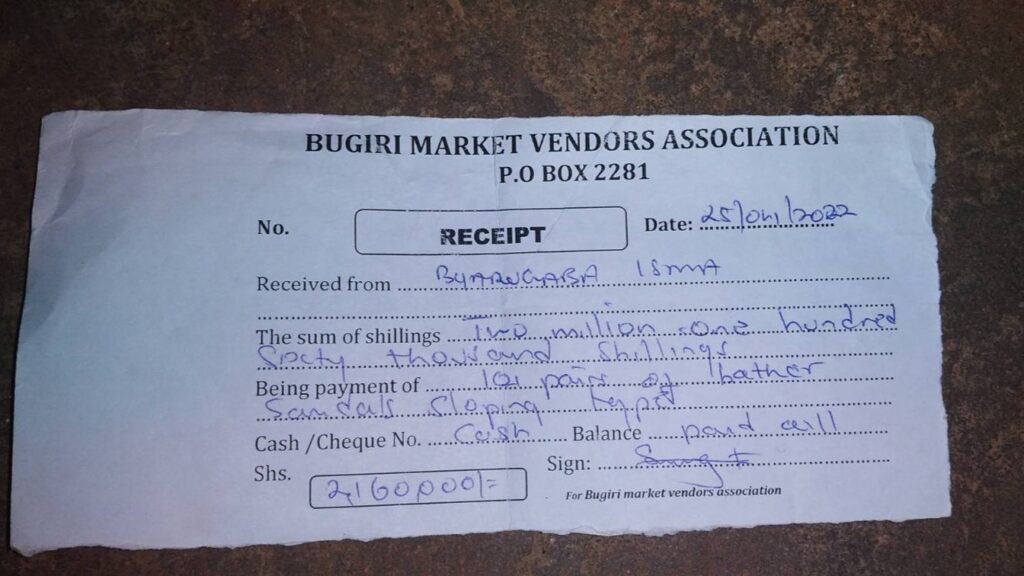 BUGIRI MARKET VENDORS ASSOCIATION
P.O BOX 2281
No. RECEIPT Date: 25/04/2022
Received from BYARUGABA ISMA
The sum of shillings Two million one hundred
Sixty thousand shillings
Being payment of pairs of leather
Sandals sloping
Cash /Cheque No. Cash Balance paid all
Shs. 2,160,000/= Sign:
For Bugiri market vendors association